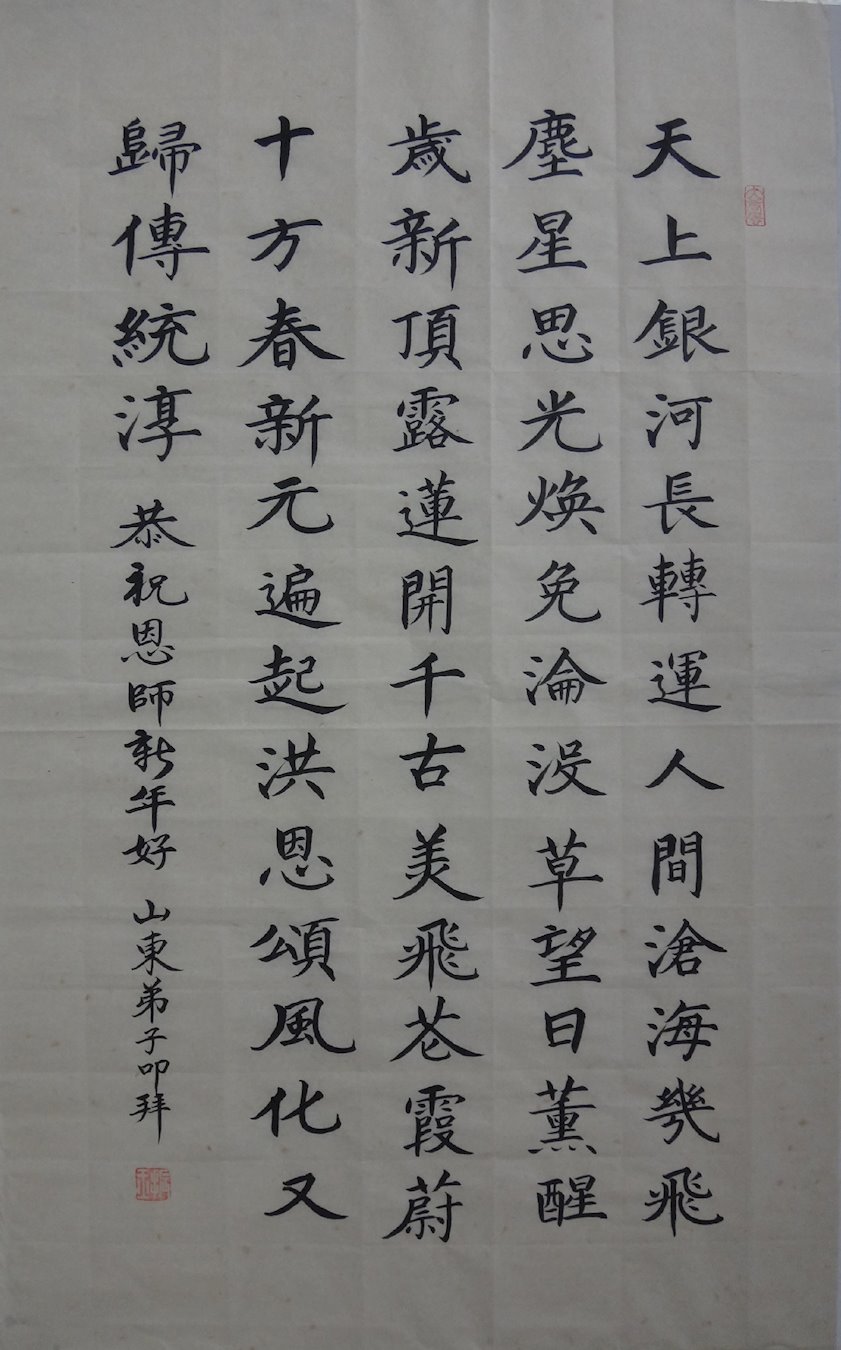 天上銀河長轉運人間滄海幾飛
塵星思光煥免淪没草望日薰醒
歲新頂露蓮開千古美飛花霞蔚
十方春新元遍起洪恩頌風化又
歸傳統淳
恭祝恩師新年好
山東弟子叩拜